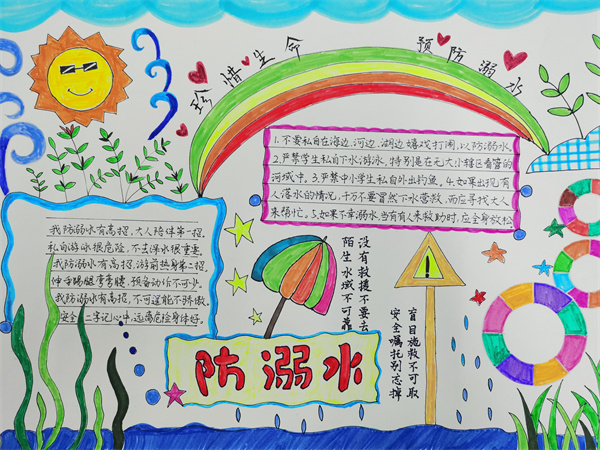 珍惜生命 预防溺水
1.不要私自在海边、河边、湖边嬉戏打闹,以防溺水。
2.严禁学生私自下水游泳,特别是在无大小辖区看管的
河域中。3.严禁中小学生私自外出钓鱼。4.如果出现有
人落水的情况,千万不要冒然下水营救,而应寻找大人
来帮忙。5.如果不幸溺水,当有人来救助时,应全身放松
我防溺水有高招,大人陪伴第一招,
私自游泳很危险,不去深水很重要
我防溺水有高招,游前热身第二招,
伸手踢腿弯弯腰,预备动作不可少。
我防溺水有高招,不可逞能不骄傲,
安全二字记心中,远离危险身体好。
没有救援不要去
陌生水域不可靠
盲目施救不可取
安全嘱托别忘掉
防溺水